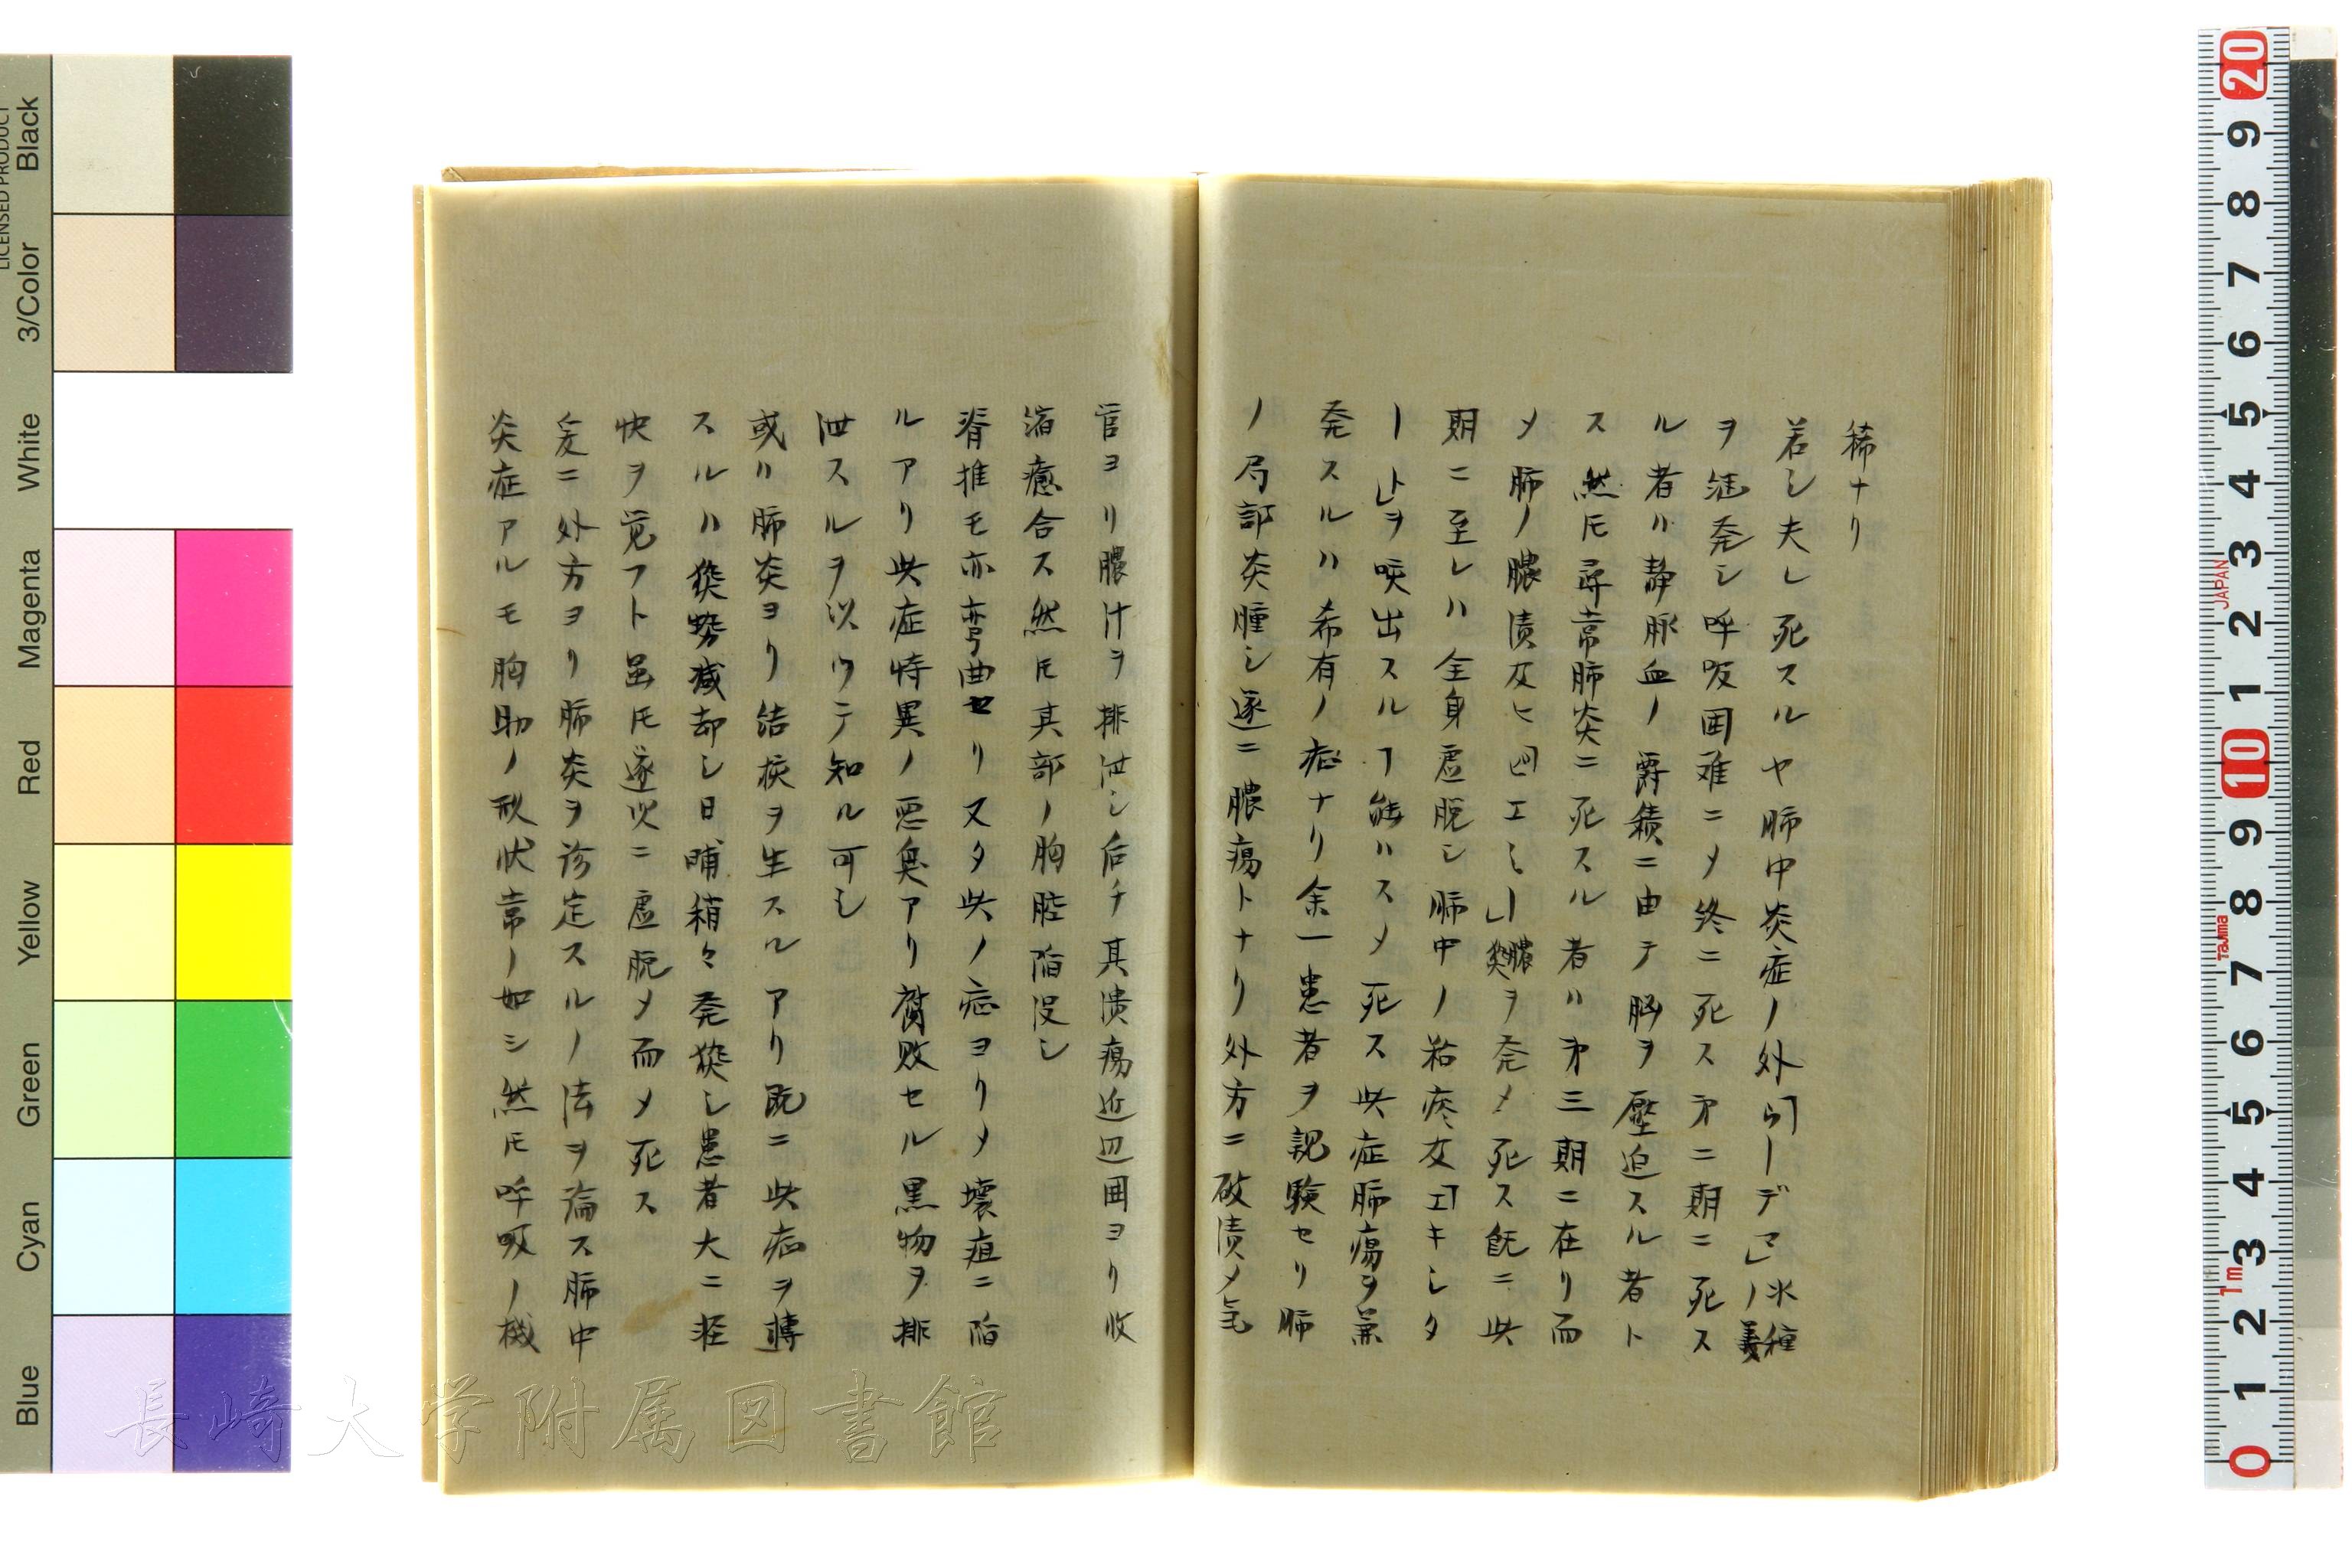 稀ナリ
若シ夫レ死スルヤ肺中炎症ノ外「ヲーデマ」水種ノ義
ヲ継発シ呼吸困难ニ〆終ニ死ス㐧二期ニ死ス
ル者ハ静脉血ノ欝積ニ由テ脳ヲ壓迫スル者ト
ス然𪜈尋常肺炎ニ死スル者ハ㐧三期ニ在リ而
〆肺ノ膿潰及ヒ「ピエミー」膿熱ヲ発〆死ス既ニ此
期ニ至レハ全身虚脱シ肺中ノ粘痰及「エキシタ
ート」ヲ咳出スルヿ能ハス〆死ス此症肺瘍ヲ兼
発スルハ希有ノ症ナリ余一患者ヲ親験セリ肺
ノ局部炎腫シ遂ニ膿瘍トナリ外方ニ破潰〆気
官ヨリ膿汁ヲ排泄シ后チ其潰瘍近辺囲ヨリ收
縮癒合ス然𪜈其部ノ胸腔陥没シ
脊推モ亦弯曲セリ又タ此ノ症ヨリ〆壊疽ニ陥
ルアリ此症特異ノ悪臭アリ腐敗セル黒物ヲ排
泄スルヲ以ウテ知ル可シ
或ハ肺炎ヨリ結核ヲ生スルアリ既ニ此症ヲ轉
スルハ熱勢減却シ日晡稍々発熱シ患者大ニ軽
快ヲ覚フト虽𪜈逐次ニ虚脱〆而〆死ス
爰ニ外方ヨリ肺炎ヲ診定スルノ法ヲ論ス肺中
炎症アルモ胸肋ノ形状常ノ如シ然𪜈呼吸ノ機
長崎大学附属図書館
LICENSED PRODUCT
Black
3/Color
White
Magenta
Red
Yellow
Green
Cyan
Blue
20
9
8
7
6
5
4
3
2
1
10
9
8
7
6
5
4
3
2
1
0
JAPAN
Tajima
1m